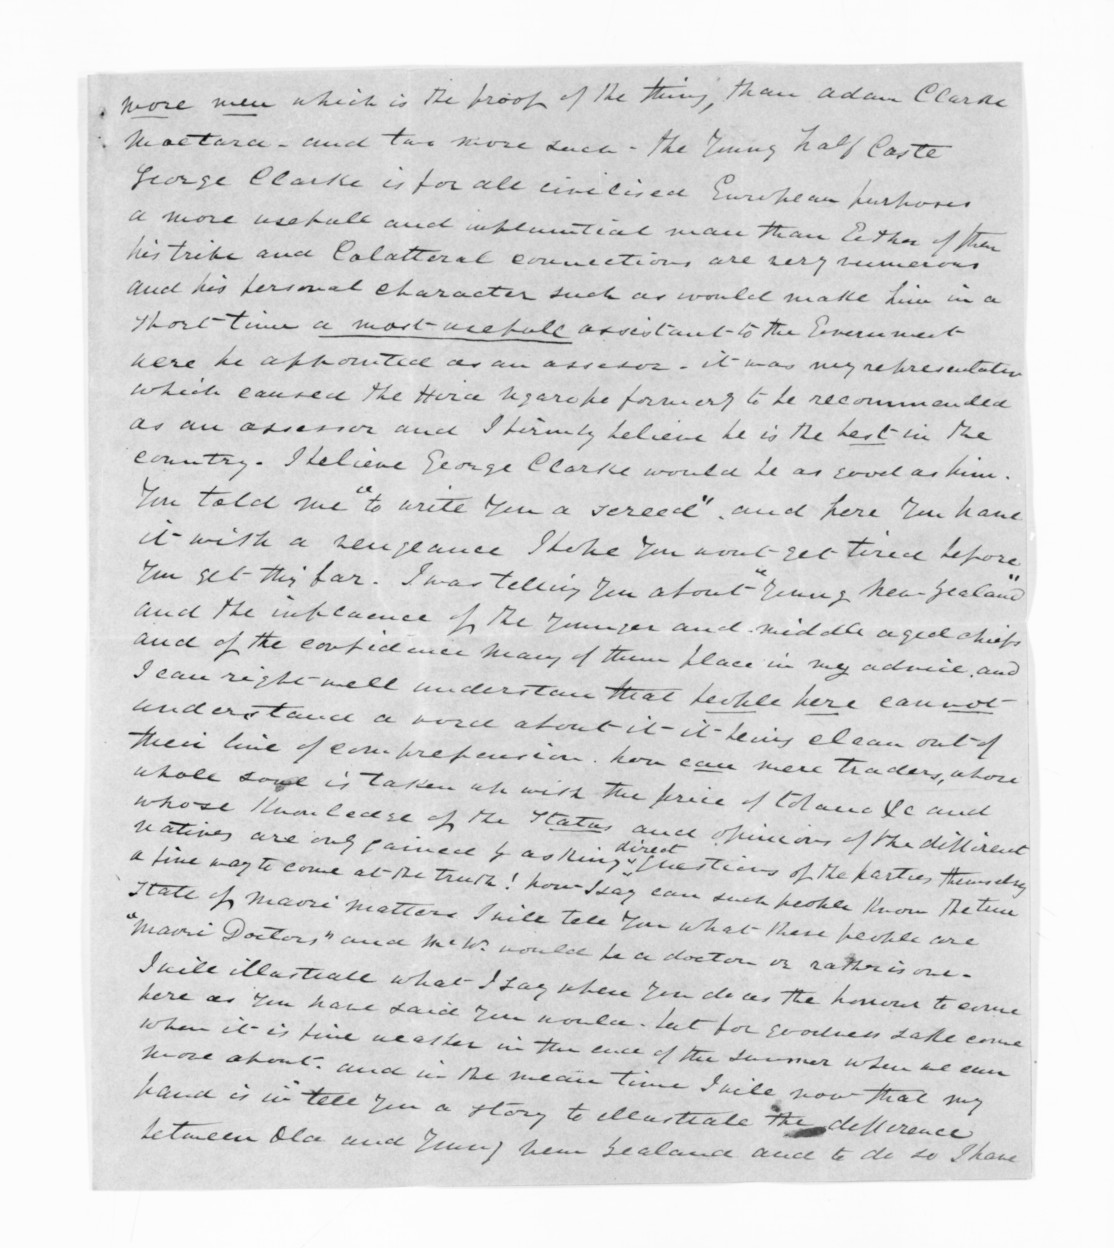 more men which is the proof of the thing, than Adam Clarke
Moetara - and two more such - the Young half Caste
George Clarke is for all civilised European purposes
a more usefull and influential man than Either of them
his tribe and Colatteral connections are very numerous
and his personal character such as would make him in a
short time a most usefull assistant to the Government
were he appointed as an assessor - it was my representation
which caused the Hira Ngarope formerly to be recommended
as an assessor and I firmly believe he is the best in the
country. I believe George Clarke would be as good as him.
You told me "to write You a screed". and here You have
it with a vengeance I hope You wont get tired before
You get this far. I was telling You about "Young New Zealand"
and the influence of the Younger and middle aged chiefs
and of the confidence many of them place in my advice, and
I can right well understan that people here cannot
understand a word about it it being clean out of
their line of comprehension. how can mere traders, whose
whole soul is taken up with the price of &c and
whose Knowledge of the Status and opinions of the different
natives are only gained by asking direct Questions of the parties themselves
a fine way to come at the truth! how I say can such people Know the true
State of maori matters I will tell You what these people are
"Maori Doctors" and Mr W. would be a doctor or rather is one.
I will illustrate what I say when You do us the honour to come
here as You have said You would. but for goodness sake come
when it is fine weather in the end of the summer when we can
move about. and in the mean time I will now that my
hand is in tell You a story to illustrate the difference
between Old and Young New Zealand and to do so I have